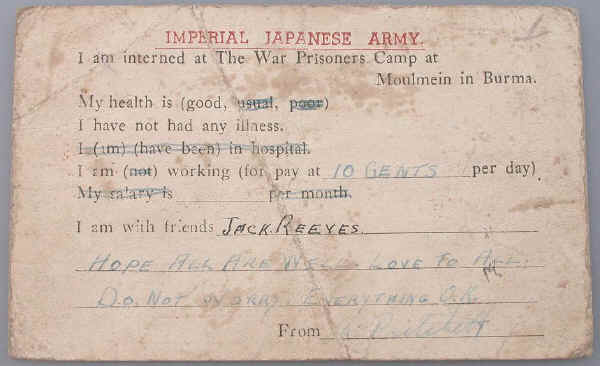 IMPERIAL JAPANESE ARMY.
I am interned at The War Prisoners Camp at
Moulmein in Burma.
My health is (good, usual, poor)
I have not had any illness.
I (am) (have been) in hospital.
I am (not) working (for pay at 10 CENTS per day).
My salary is per month.
I am with friends JACK REEVES
HOPE ALL ARE WELL. LOVE TO ALL.
DO. NOT WORRY. EVERYTHING O.K.
From Pritchett